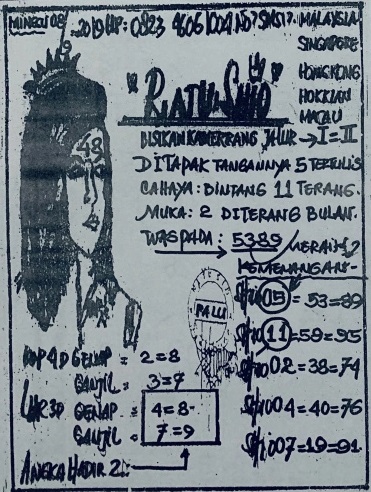 MINGGU 08
2019 HP: 0823 4606 1004
MALAYSIA
SINGAPORE
HONGKONG
HOKKIAN
MACAU
"RATU SHIO"
48
JALUR → I = II
DITAPAK TANGANNYA 5 TERTULIS
CAHAYA: BINTANG 11 TERANG.
MUKA: 2 DITERANG BULAN.
WASPADA: 5389 MERAIH 2
KEMENANGAN
SHIO 05 = 53 = 89
PALU
SHIO 11 = 59 = 95
KOP 4D GENAP = 2=8
SHIO 02 = 38 = 74
GANJIL = 3=7
LHR 3D GENAP = 4=8
SHIO 04 = 40 = 76
GANJIL = 7=9
SHIO 07 = 19 = 91
ANGKA HADIR 2: